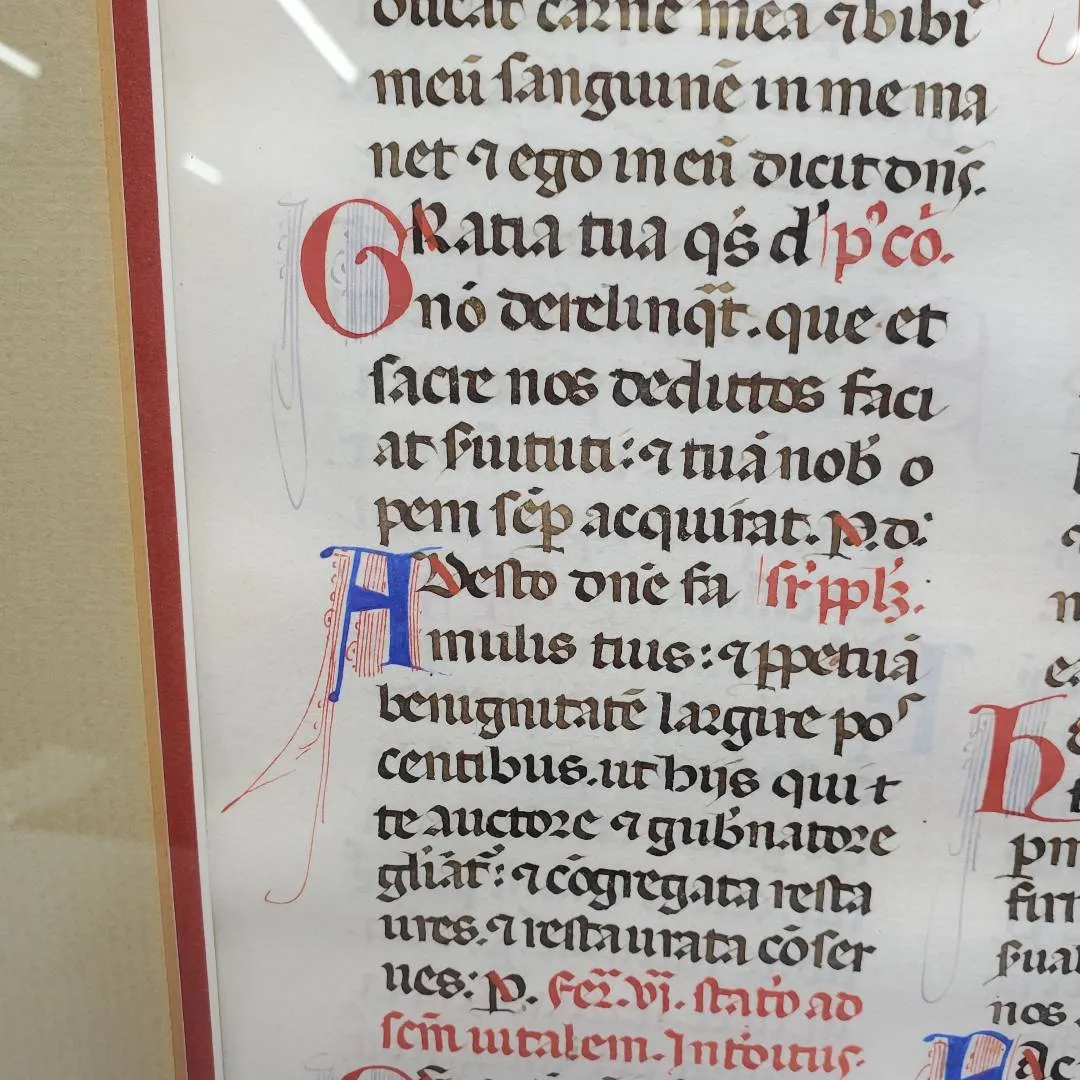 ducat carnē mea ⁊ bibi
meū ſanguinē in me ma
net ⁊ ego in eū dicit dn̄s.
GRatia tua q̄s d' p'cō.
nō derelinq̄t. que et
ſacre nos deditos faci
at ſ̄uituti: ⁊ tuā nob̄ o
pem ſēꝑ acquirat. P. d:
ADeſto dn̄e fa ſr̄ ppl̄ꝫ.
mulis tuis: ⁊ ꝑpetuā
benignitatē largire poſ
centibus. ut hijs qui t
te auctore ⁊ gub̄natore
gl̄iāt': ⁊ cōgregata reſta
ures. ⁊ reſtaurata cōſer
ues: P. Fer̄. vi. ſtatō ad
ſc̄m uitalem. Introitus.